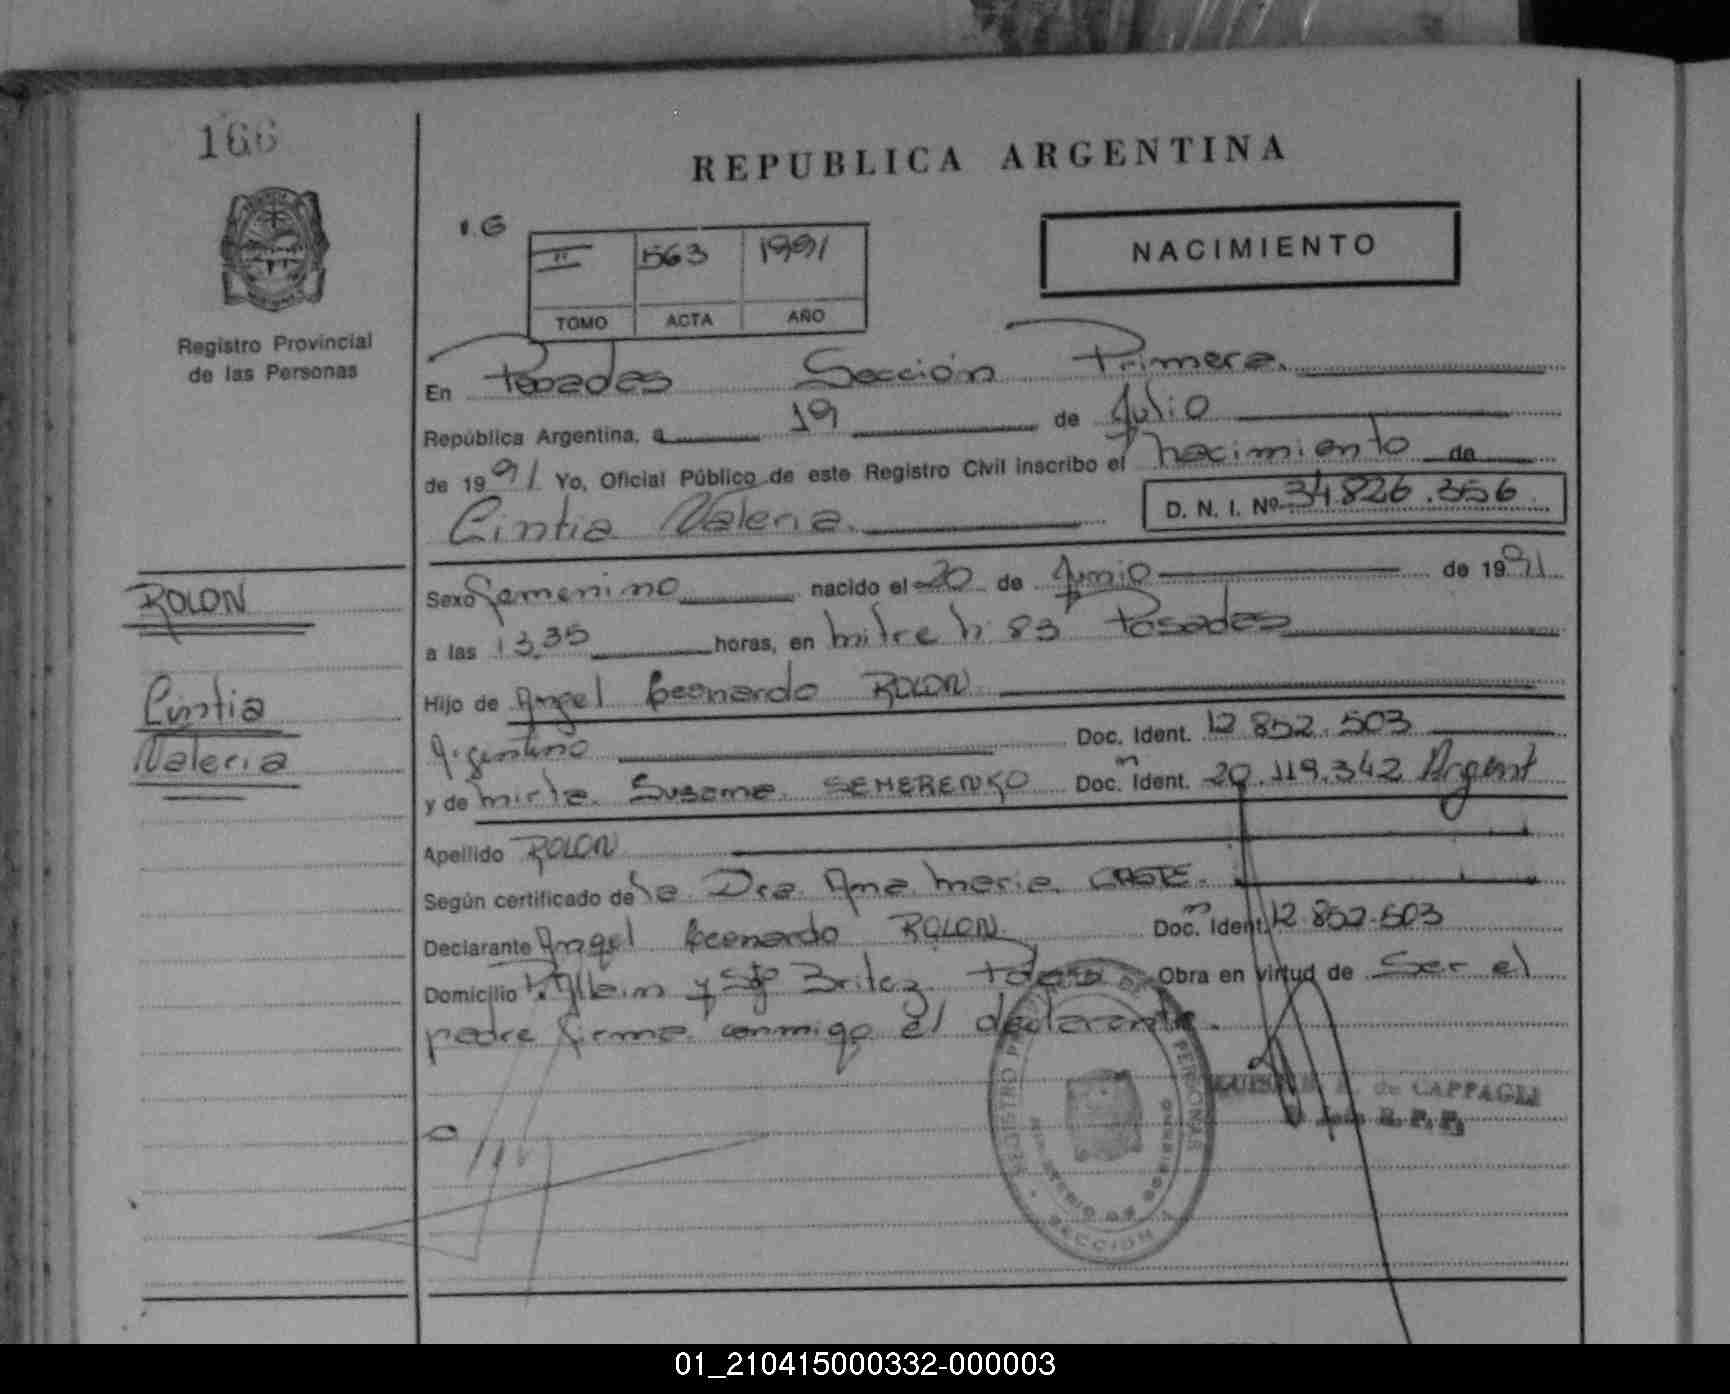 166
REPUBLICA ARGENTINA
1.G
II 563 1991
TOMO ACTA AÑO
NACIMIENTO
Registro Provincial
de las Personas
En Posadas Sección Primera.
República Argentina, a 19 de Julio
de 1991 Yo, Oficial Público de este Registro Civil inscribo el nacimiento de
Cintia Valeria. D. N. I. Nº 34.826.356
ROLON
Cintia
Valeria
Sexo Femenino nacido el 20 de Junio de 1991
a las 13,35 horas, en mitre n 83 Posadas
Hijo de Angel Bernardo ROLON
Argentino Doc. Ident. 12.852.503
y de mirta Susana SEMERENKO Doc. Ident. 20.119.342 Argent
Apellido ROLON
Según certificado de la Dra. Ana maria
Declarante Angel Bernardo ROLON Doc. Ident. 12.852.503
Domicilio y Sgto Britez Obra en virtud de Ser el
padre firma conmigo el declarante.
de CAPPAGLI
R. P. P.
REGISTRO PROVINCIAL DE LAS PERSONAS
MINISTERIO DE GOBIERNO
SECCION 1
01_210415000332-000003